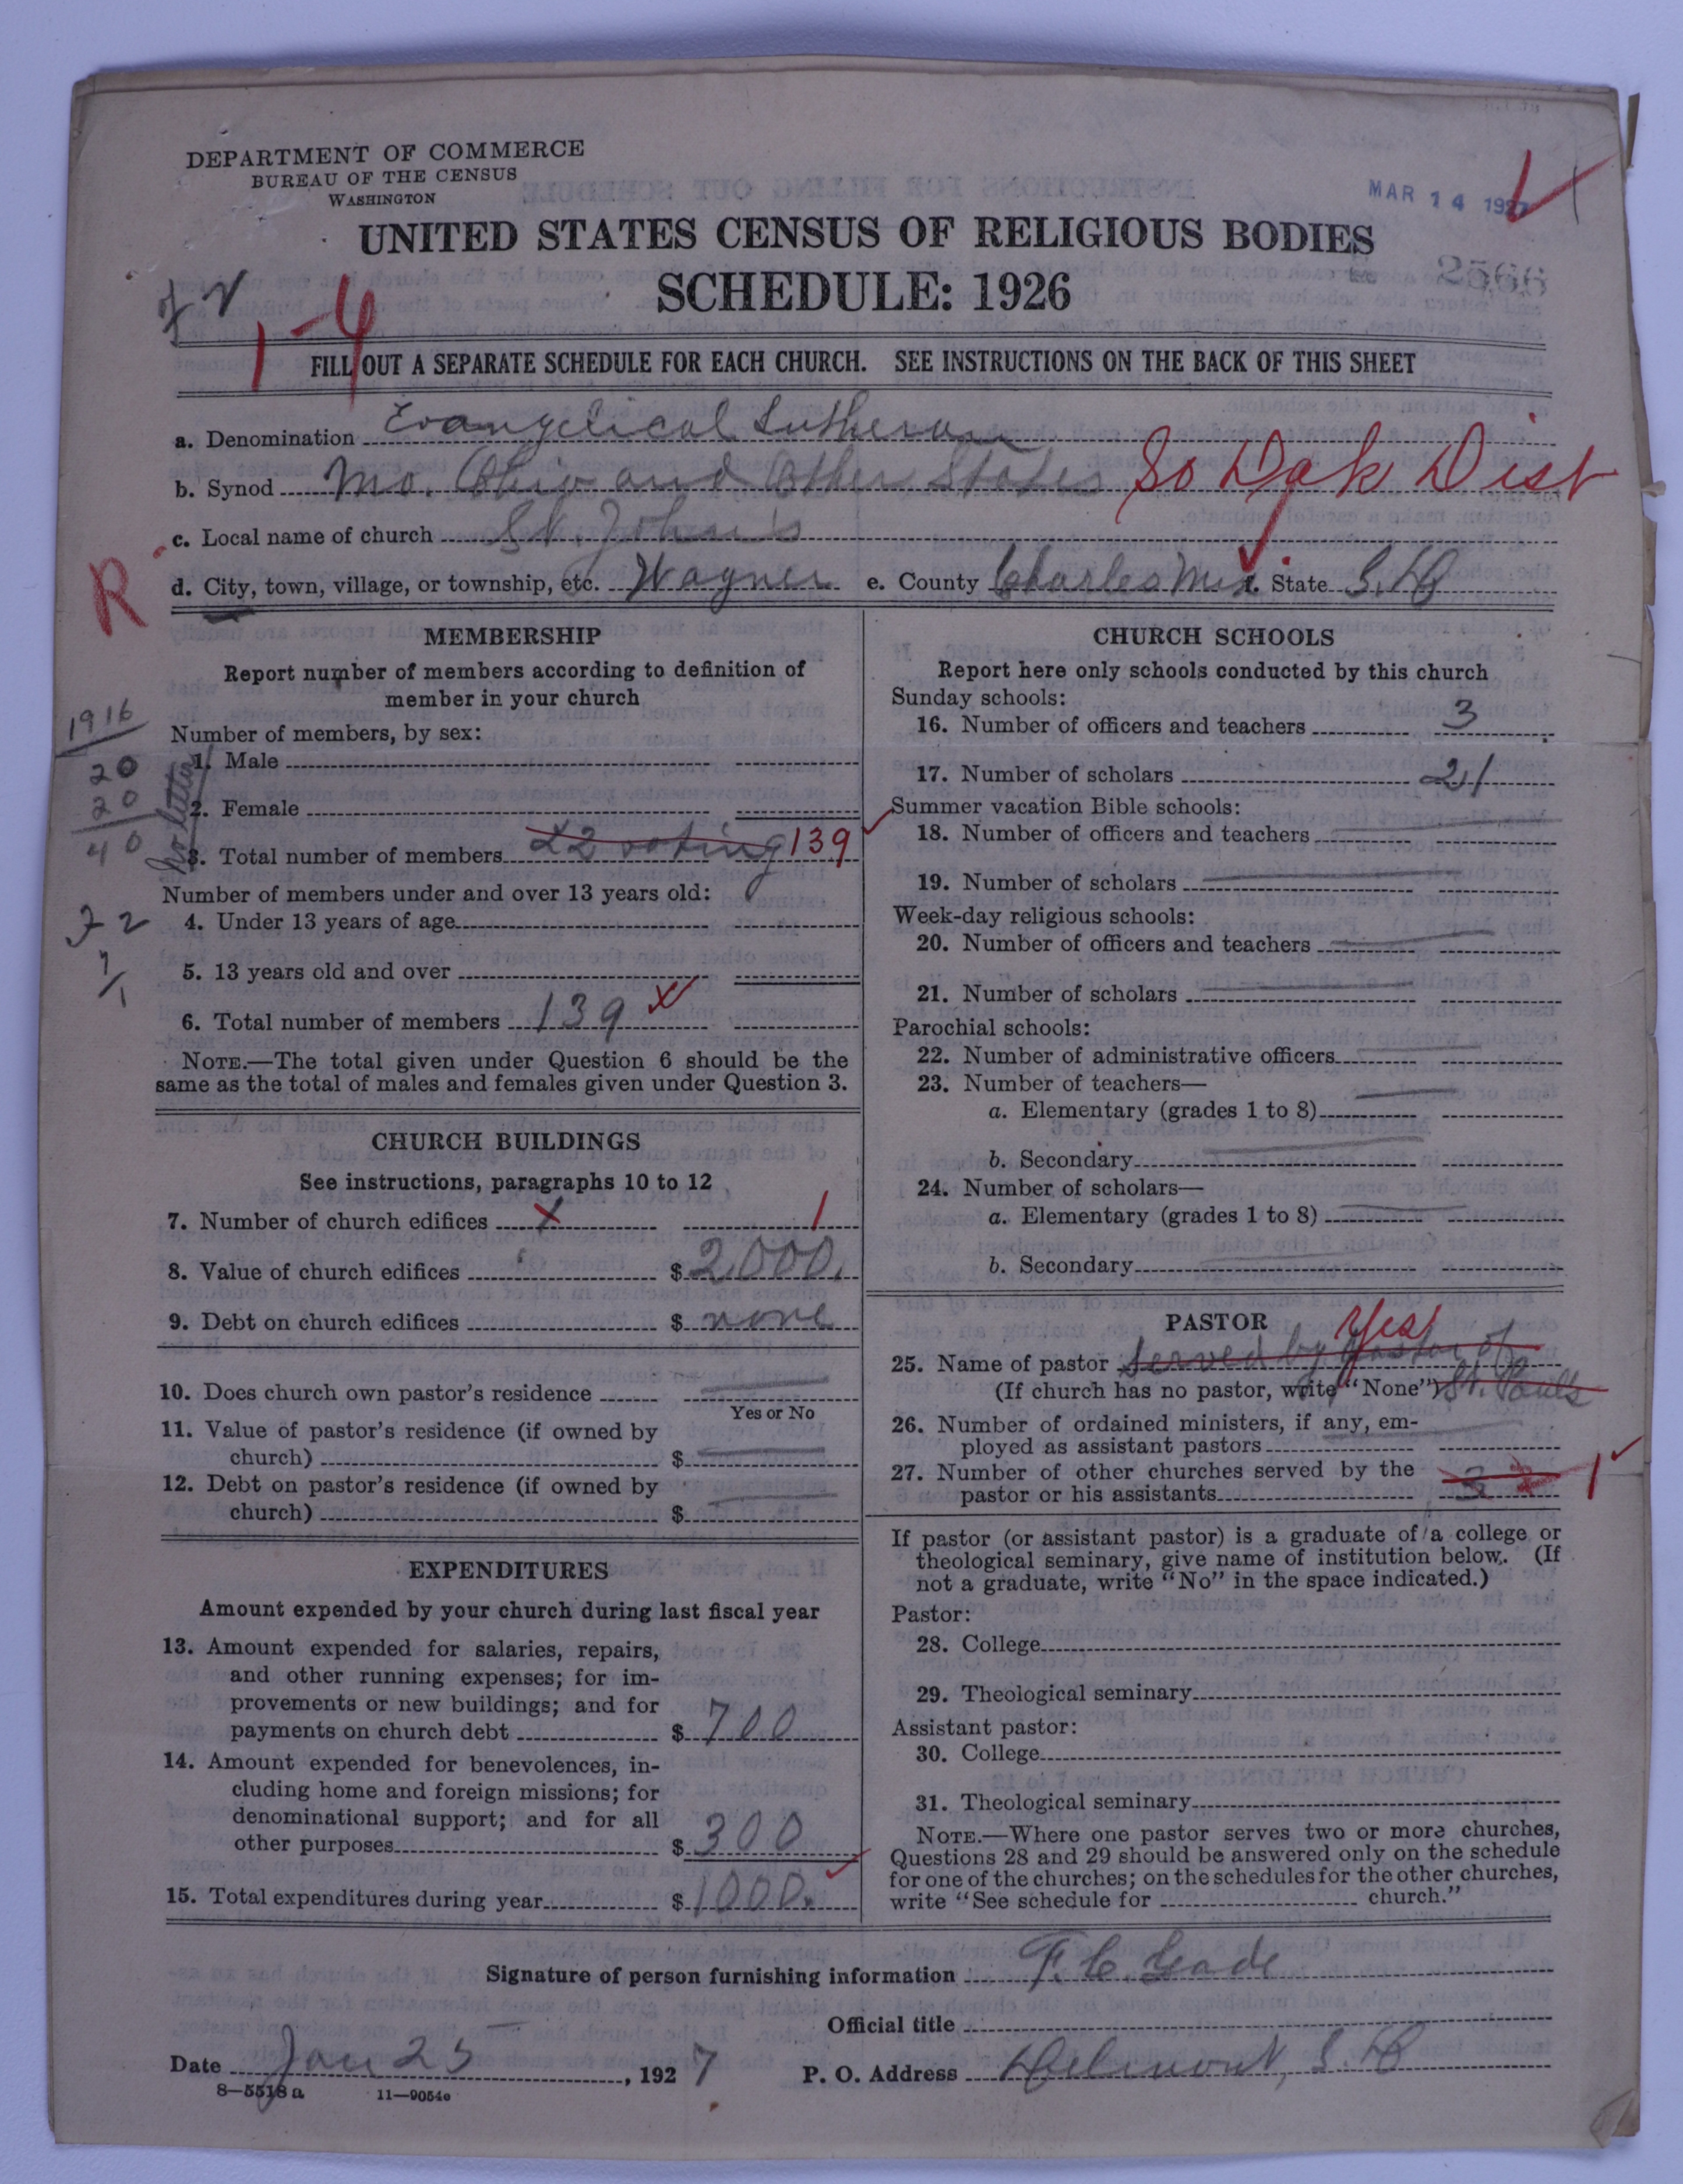 DEPARTMENT OF COMMERCE
BUREAU OF THE CENSUS
WASHINGTON
MAR 14 1927
UNITED STATES CENSUS OF RELIGIOUS BODIES
SCHEDULE: 1926
2566
1-4
FILL OUT A SEPARATE SCHEDULE FOR EACH CHURCH. SEE INSTRUCTIONS ON THE BACK OF THIS SHEET
a. Denomination Evangelical Lutheran
b. Synod Mo. Ohio and Other States So Dak Dist
c. Local name of church St. John's
R
d. City, town, village, or township, etc. Wagner e. County Charles Mix f. State S.D.
MEMBERSHIP
Report number of members according to definition of
member in your church
1916
Number of members, by sex:
20
1. Male
20
2. Female
40
No letter
3. Total number of members 22 voting 139
Number of members under and over 13 years old:
4. Under 13 years of age
5. 13 years old and over
6. Total number of members 139
NOTE.—The total given under Question 6 should be the
same as the total of males and females given under Question 3.
CHURCH BUILDINGS
See instructions, paragraphs 10 to 12
7. Number of church edifices 1
8. Value of church edifices $ 2000.
9. Debt on church edifices $ none
10. Does church own pastor's residence
Yes or No
11. Value of pastor's residence (if owned by
church) $
12. Debt on pastor's residence (if owned by
church) $
EXPENDITURES
Amount expended by your church during last fiscal year
13. Amount expended for salaries, repairs,
and other running expenses; for im-
provements or new buildings; and for
payments on church debt $ 700
14. Amount expended for benevolences, in-
cluding home and foreign missions; for
denominational support; and for all
other purposes $ 300
15. Total expenditures during year $ 1000.
CHURCH SCHOOLS
Report here only schools conducted by this church
Sunday schools:
16. Number of officers and teachers 3
17. Number of scholars 21
Summer vacation Bible schools:
18. Number of officers and teachers
19. Number of scholars
Week-day religious schools:
20. Number of officers and teachers
21. Number of scholars
Parochial schools:
22. Number of administrative officers
23. Number of teachers—
a. Elementary (grades 1 to 8)
b. Secondary
24. Number of scholars—
a. Elementary (grades 1 to 8)
b. Secondary
PASTOR Yes
25. Name of pastor Served by Pastor of
(If church has no pastor, write "None") St. Pauls
26. Number of ordained ministers, if any, em-
ployed as assistant pastors
27. Number of other churches served by the
pastor or his assistants 3 2 1
If pastor (or assistant pastor) is a graduate of a college or
theological seminary, give name of institution below. (If
not a graduate, write "No" in the space indicated.)
Pastor:
28. College
29. Theological seminary
Assistant pastor:
30. College
31. Theological seminary
NOTE.—Where one pastor serves two or more churches,
Questions 28 and 29 should be answered only on the schedule
for one of the churches; on the schedules for the other churches,
write "See schedule for church."
Signature of person furnishing information F. C. Gade
Official title
Date Jan 25, 1927 P. O. Address Delmont, S. D.
8—5518a 11—9054c